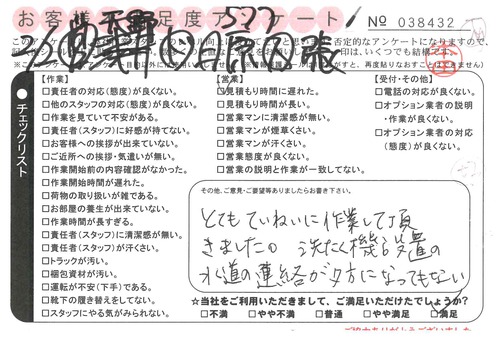 お客様満足度アンケート
No 038432
【作業】
□責任者の対応(態度)が良くない。
□他のスタッフの対応(態度)が良くない。
□作業を見ていて不安がある。
□責任者(スタッフ)に好感が持てない。
□お客様への挨拶が出来ていない。
□ご近所への挨拶・気遣いが無い。
□作業開始前の内容確認がなかった。
□作業開始時間が遅れた。
□荷物の取り扱いが雑である。
□お部屋の養生が出来ていない。
□作業時間が長すぎる。
□責任者(スタッフ)に清潔感が無い。
□責任者(スタッフ)が汗くさい。
□トラックが汚い。
□梱包資材が汚い。
□運転が不安(下手)である。
□靴下の履き替えをしてない。
□スタッフにやる気がみられない。
【営業】
□見積もり時間に遅れた。
□見積もり時間が長い。
□営業マンに清潔感が無い。
□営業マンが煙草くさい。
□営業マンが汗くさい。
□営業態度が良くない。
□営業の説明と作業が一致してない。
【受付・その他】
□電話の対応が良くない。
□オプション業者の説明
・作業が良くない。
□オプション業者の対応
(態度)が良くない。
チェックリスト
その他、ご意見・ご要望等ありましたらお書き下さい。
とてもていねいに作業して頂
きました。洗たく機設置の
水道の連絡が夕方になってもない
☆当社をご利用いただきまして、ご満足いただけたでしょうか?
□不満 □やや不満 □普通 □やや満足 □満足
ご協力ありがとうございました